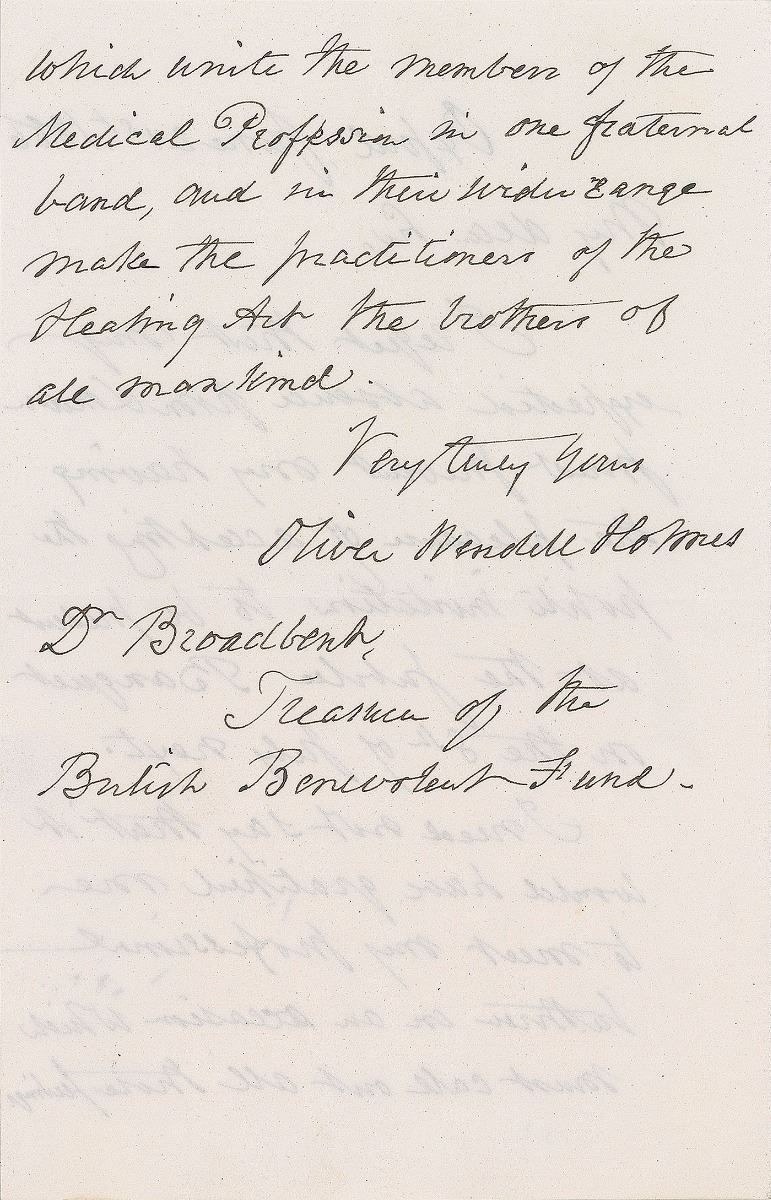 which unite the members of the
Medical Profession in one fraternal
band, and in their wider range
make the practitioners of the
Healing Art the brothers of
all mankind.
Very truly yours
Oliver Wendell Holmes
Dr Broadbent,
Treasurer of the
British Benevolent Fund.